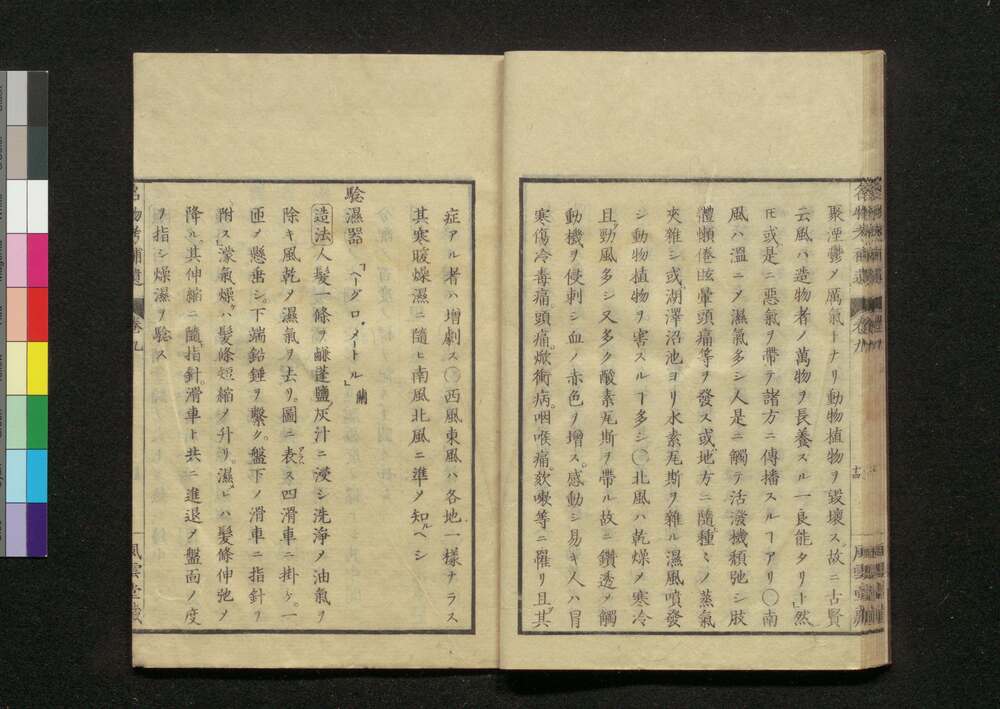 聚湮鬱ノ厲氣トナリ動物植物ヲ毀壞ス故ニ古賢
云風ハ造物者ノ萬物ヲ長養スル一良能タリト然
𪜈或是ニ惡氣ヲ帶テ諸方ニ傳播スルヿアリ〇南
風ハ溫ニメ濕氣多シ人是ニ觸テ活潑機頽弛シ肢
體懶倦眩暈頭痛等ヲ發ス或地方ニ隨種々ノ蒸氣
夾雜シ或湖澤沼池ヨリ水素瓦斯ヲ雜ル濕風噴發
シ動物植物ヲ害スルヿ多シ〇北風ハ乾燥メ寒冷
且勁風多シ又多ク酸素瓦斯ヲ帶ル故ニ鑽透メ觸
動機ヲ侵刺シ血ノ赤色ヲ增ス感動シ易キ人ハ冒
寒傷冷毒痛頭痛焮衝病咽喉痛欬嗽等ニ罹リ且其
十四
症アル者ハ增劇ス〇西風東風ハ各地一樣ナラス
其寒暖燥濕ニ隨ヒ南風北風ニ準メ知ルヘシ
驗濕器「ヘーグロメートル」蘭
造法人髮一條ヲ鹻蓬鹽灰汁ニ浸シ洗淨メ油氣ヲ
除キ風乾メ濕氣ヲ去リ圖ニ表ス四滑車ニ掛ケ一
匝メ懸垂シ下端鉛錘ヲ繫ク盤下ノ滑車ニ指針ヲ
附ス濛氣燥ケハ髮條短縮メ升リ濕ヒハ髮條伸弛メ
降ル其伸縮ニ隨指針滑車ト共ニ進退メ盤面ノ度
ヲ指シ燥濕ヲ驗ス
名物考補遺 卷九 風雲堂藏